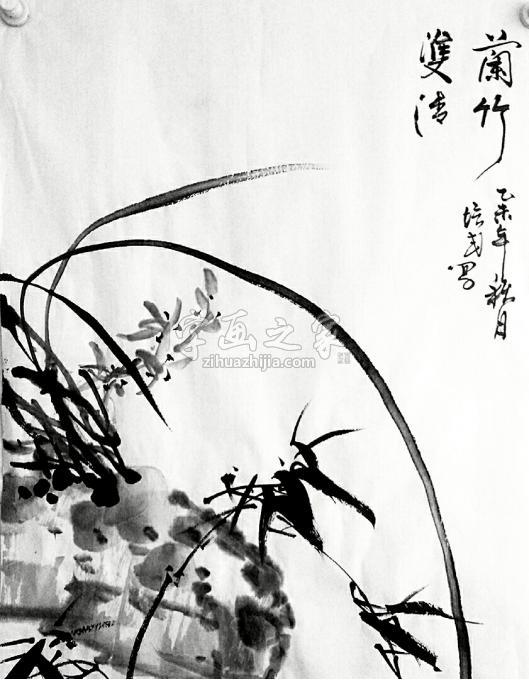 蘭竹
雙清
乙未年秋月
培武写
字画之家
zihuazhijia.com